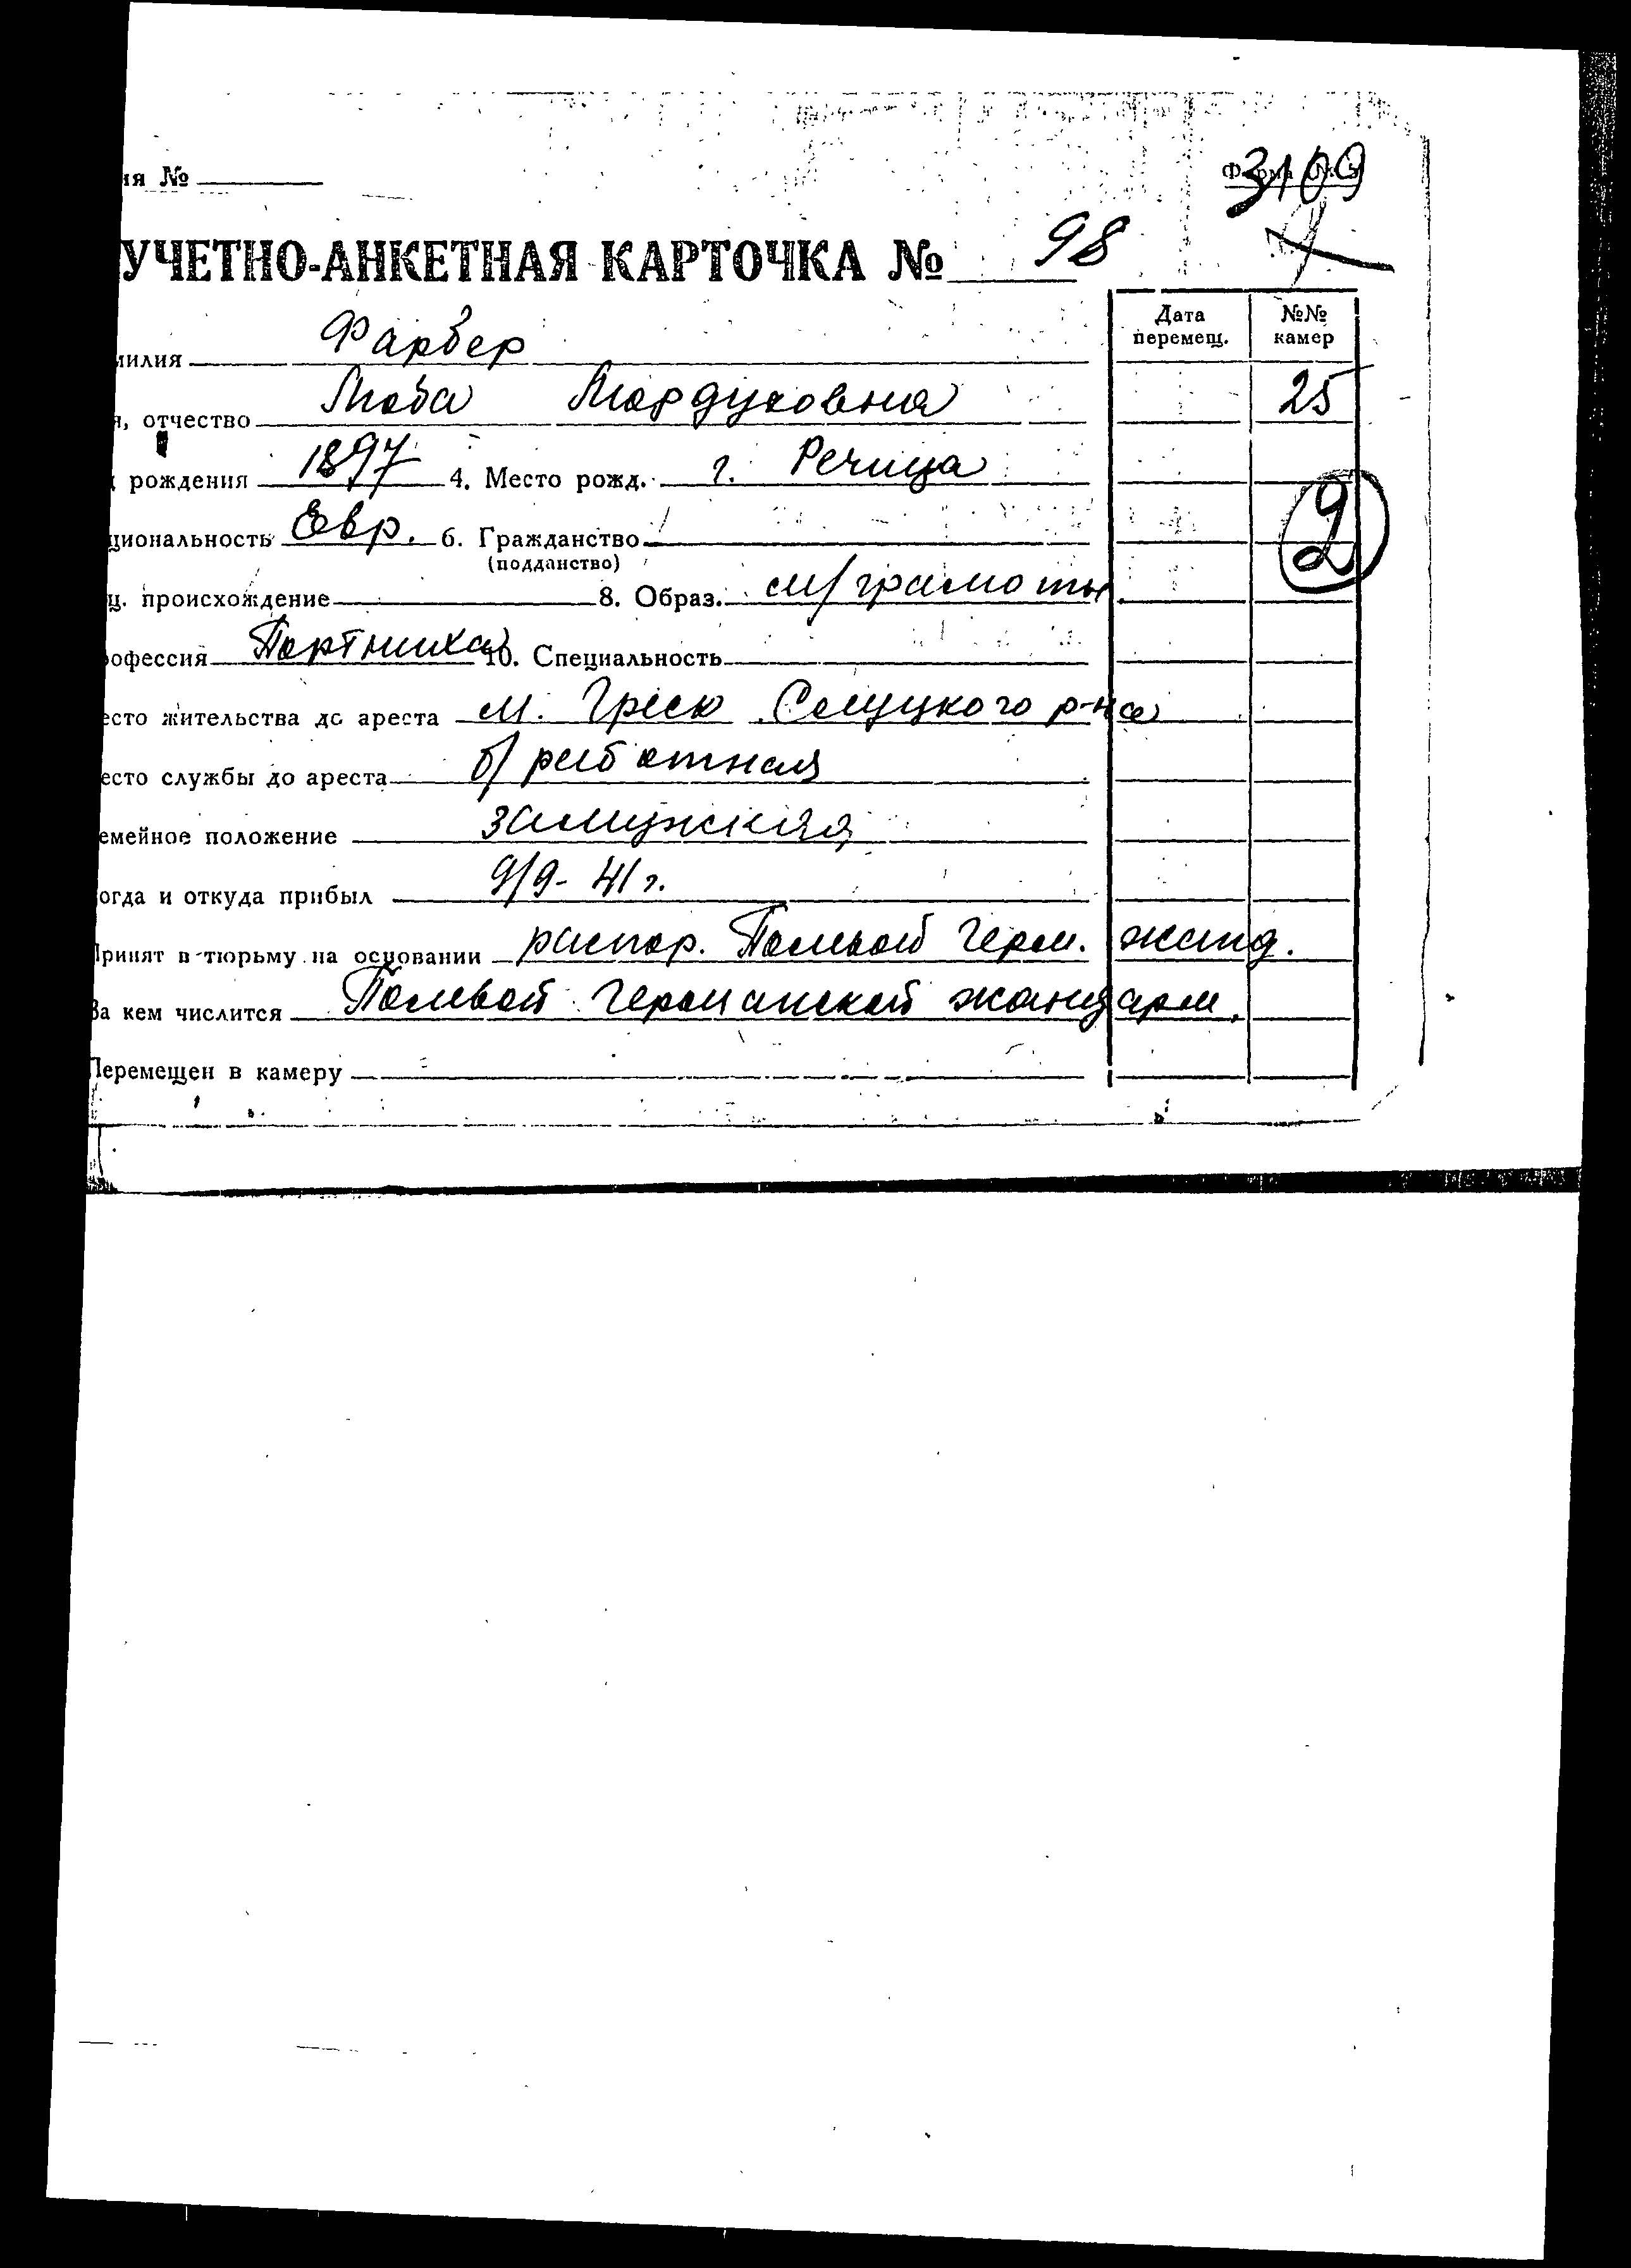 ия №
3109
УЧЕТНО-АНКЕТНАЯ КАРТОЧКА № 98
Дата перемещ.
№№ камер
милия Фарбер
я, отчество Мордуховна
25
рождения 1897 4. Место рожд. г. Речица
циональность Евр. 6. Гражданство
(подданство)
2
ц. происхождение 8. Образ. м/грамотн.
рофессия Портниха 10. Специальность
есто жительства до ареста м. Греск Слуцкого р-на
есто службы до ареста б/работная
емейное положение замужняя
огда и откуда прибыл 9/9-41 г.
Принят в тюрьму на основании распор. Полевой Герм. жанд.
За кем числится Полевой германской жандарм.
Перемещен в камеру